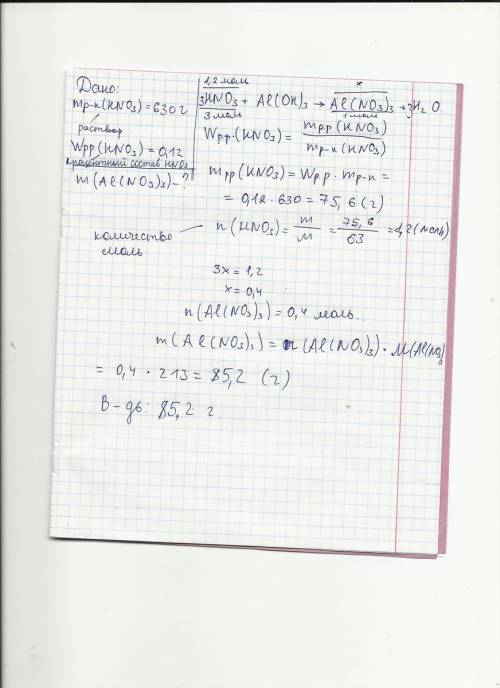 Дано:
mр-н(HNO3)=630г
раствор
Wрр(HNO3)=0,12
процентный состав HNO3
m(Al(NO3)3)-?
количество
моль
1,2 моль x
3HNO3 + Al(OH)3 → Al(NO3)3 + 3H2O
3 моль 1 моль
Wрр.(HNO3) = mрр(HNO3) / mр-н(HNO3)
mрр(HNO3) = Wрр. mр-н =
= 0,12 · 630 = 75,6 (г)
n(HNO3) = m/M = 75,6/63 = 1,2 (моль)
3x = 1,2
x = 0,4
n(Al(NO3)3) = 0,4 моль.
m(Al(NO3)3) = n(Al(NO3)3) · M(Al(NO3)
= 0,4 · 213 = 85,2 (г)
В-дь: 85,2 г